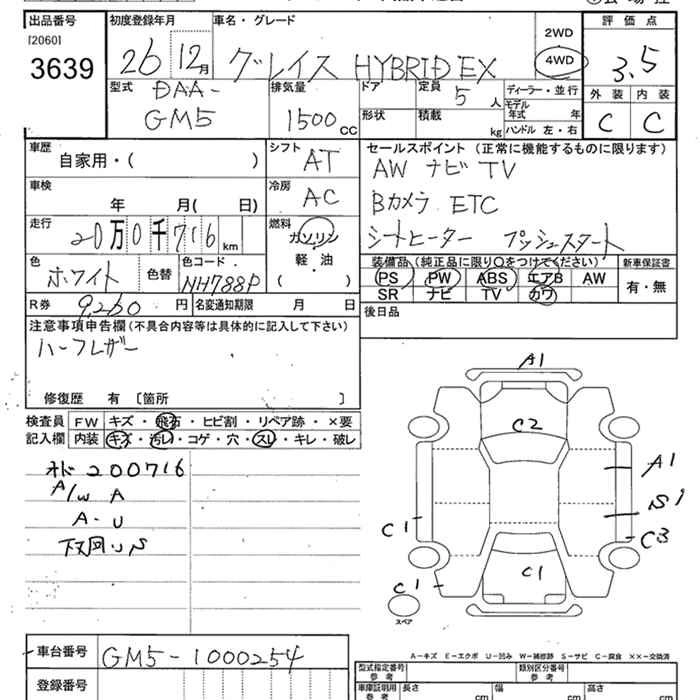 出品番号 初度登録年月 車名・グレード 評価点
[2060]
3639
26 12月 グレイス HYBRID EX 2WD 4WD 3.5
型式 DAA-GM5 排気量 1500cc ドア 定員 5人 ディーラー・並行
形状 積載 kg モデル年式 年 ハンドル 左・右
外装 内装
C C
車歴 自家用・( ) シフト AT セールスポイント (正常に機能するものに限ります)
AW ナビ TV
車検 年 月( 日) 冷房 AC Bカメラ ETC
走行 20万0千716km 燃料 ガソリン・軽・油 ( ) シートヒーター プッシュスタート
色 ホワイト 色替 色コード NH788P
装備品 (純正品に限り○をつけてください) 新車保証書
PS PW ABS エアB AW 有・無
SR ナビ TV カワ
R券 9,260円 名変通知期限 月 日
後日品
注意事項申告欄(不具合内容等は具体的に記入して下さい)
ハーフレザー
修復歴 有 [箇所 ]
検査員 FW キズ・飛石・ヒビ割・リペア跡・×要
記入欄 内装 キズ・汚レ・コゲ・穴・スレ・キレ・破レ
200716
A/W A
A-U
下回りS
A1
C2
A1
S1
C1
C3
C1
C1
スペア
A-キズ E-エクボ U-凹み W-補修跡 S-サビ C-腐食 ××-交換済
車台番号 GM5-1000254
登録番号
型式指定番号 参考 類別区分番号 参考
車庫証明用 参考 長さ cm 幅 cm 高さ cm